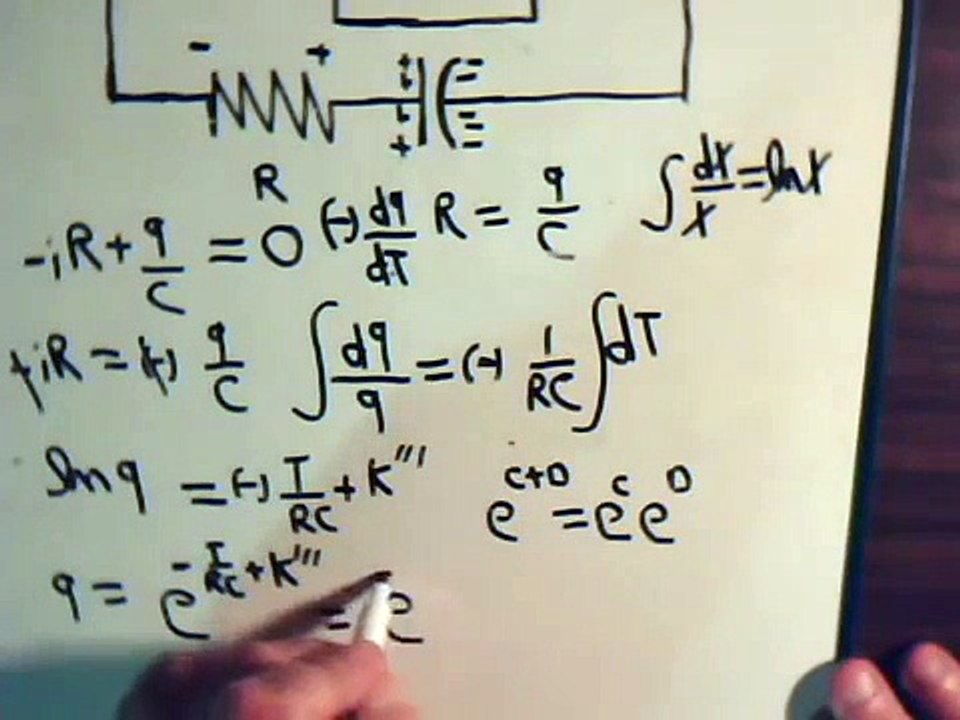 - + + + + + - - - - -
R
-iR + q/C = 0 (-) dq/dT R = q/C ∫ dx/x = ln x
+iR = (+) q/C ∫ dq/q = (-) 1/RC ∫ dT
ln q = (-) T/RC + K''' e^(C+D) = e^C e^D
q = e^(-T/RC + K''') = e